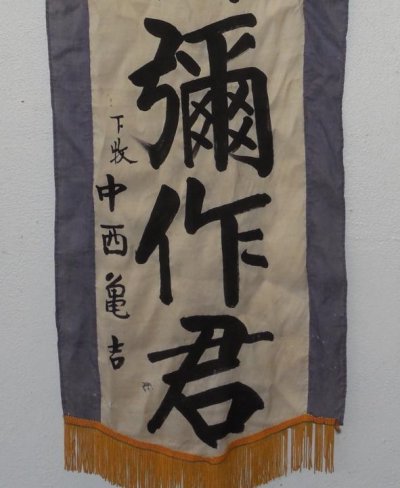 彌作君
下牧
中西亀吉